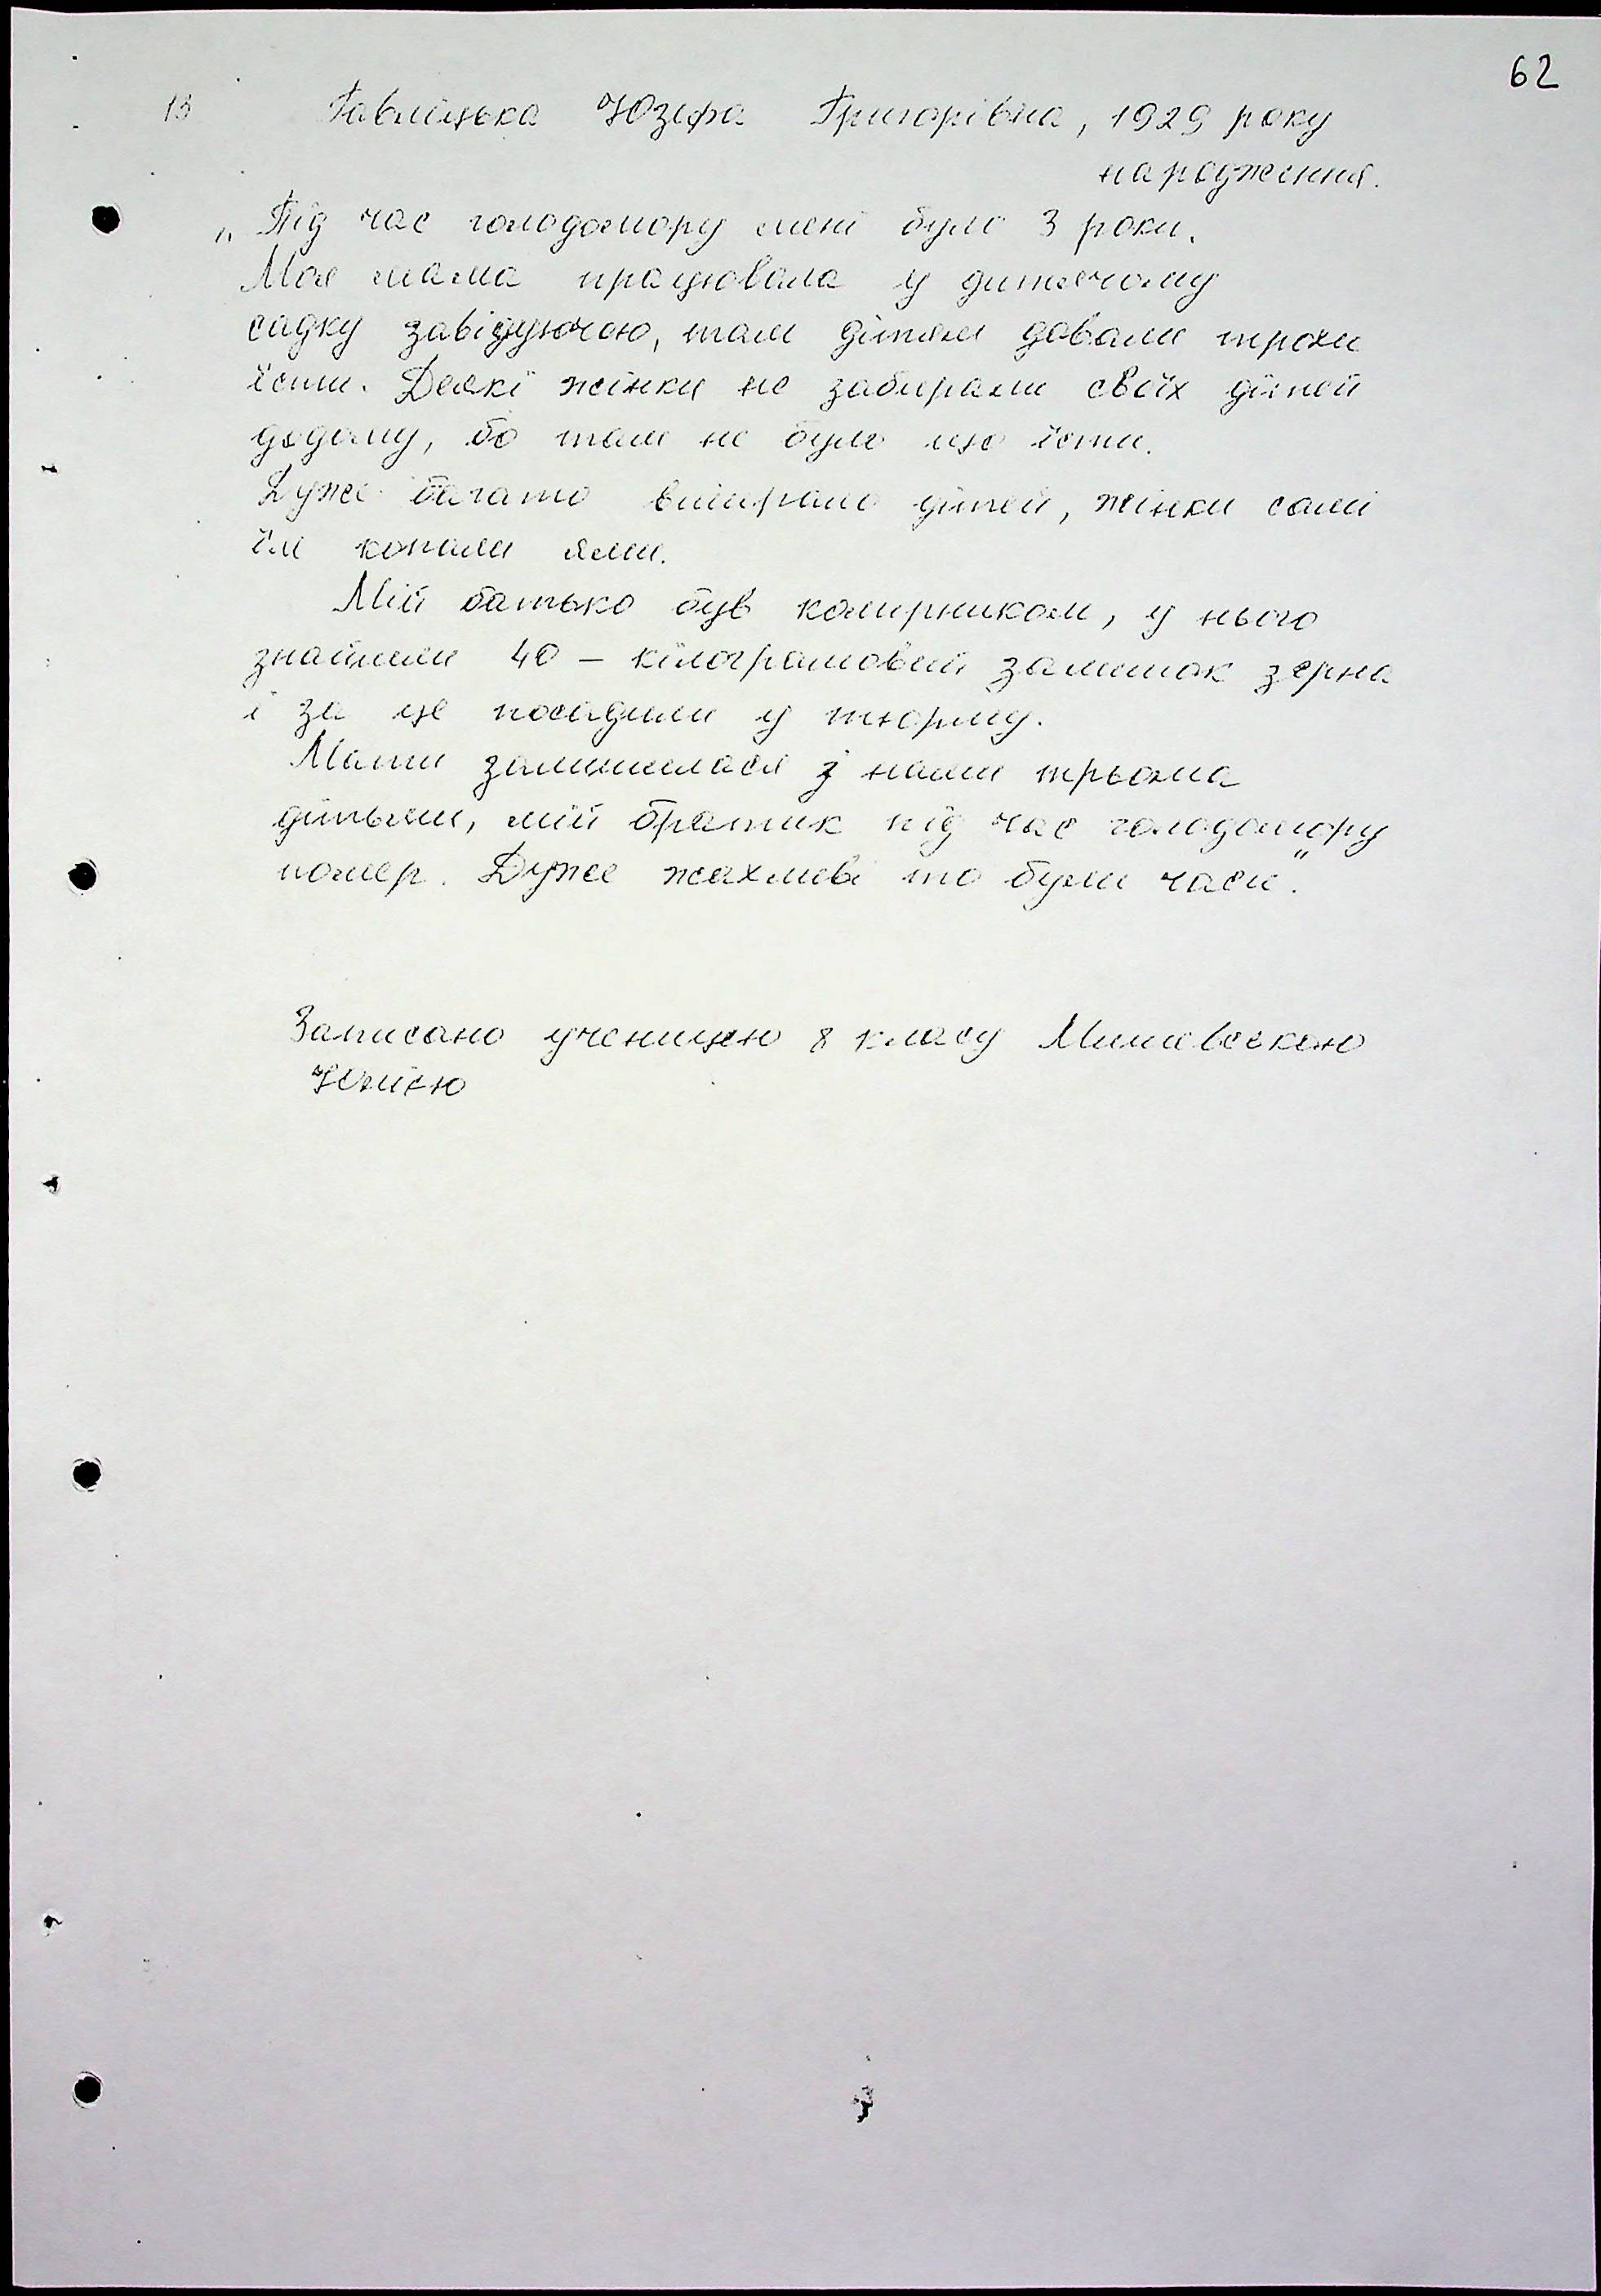 62
13 Гавліцька Юзефа Григорівна, 1929 року
народження.
„ Під час голодомору мені було 3 роки.
Моя мама працювала у дитячому
садку завідуючою, там дітям давали трохи
їсти. Деякі жінки не забирали своїх дітей
додому, бо там не було що їсти.
Дуже багато вмирало дітей, жінки самі
їм копали ями.
Мій батько був комірником, у нього
знайшли 40 – кілограмовий залишок зерна
і за це посадили у тюрму.
Мати залишилася з нами трьома
дітьми, мій братик під час голодомору
помер. Дуже жахливі то були часи".
Записано ученицею 8 класу
Юлією